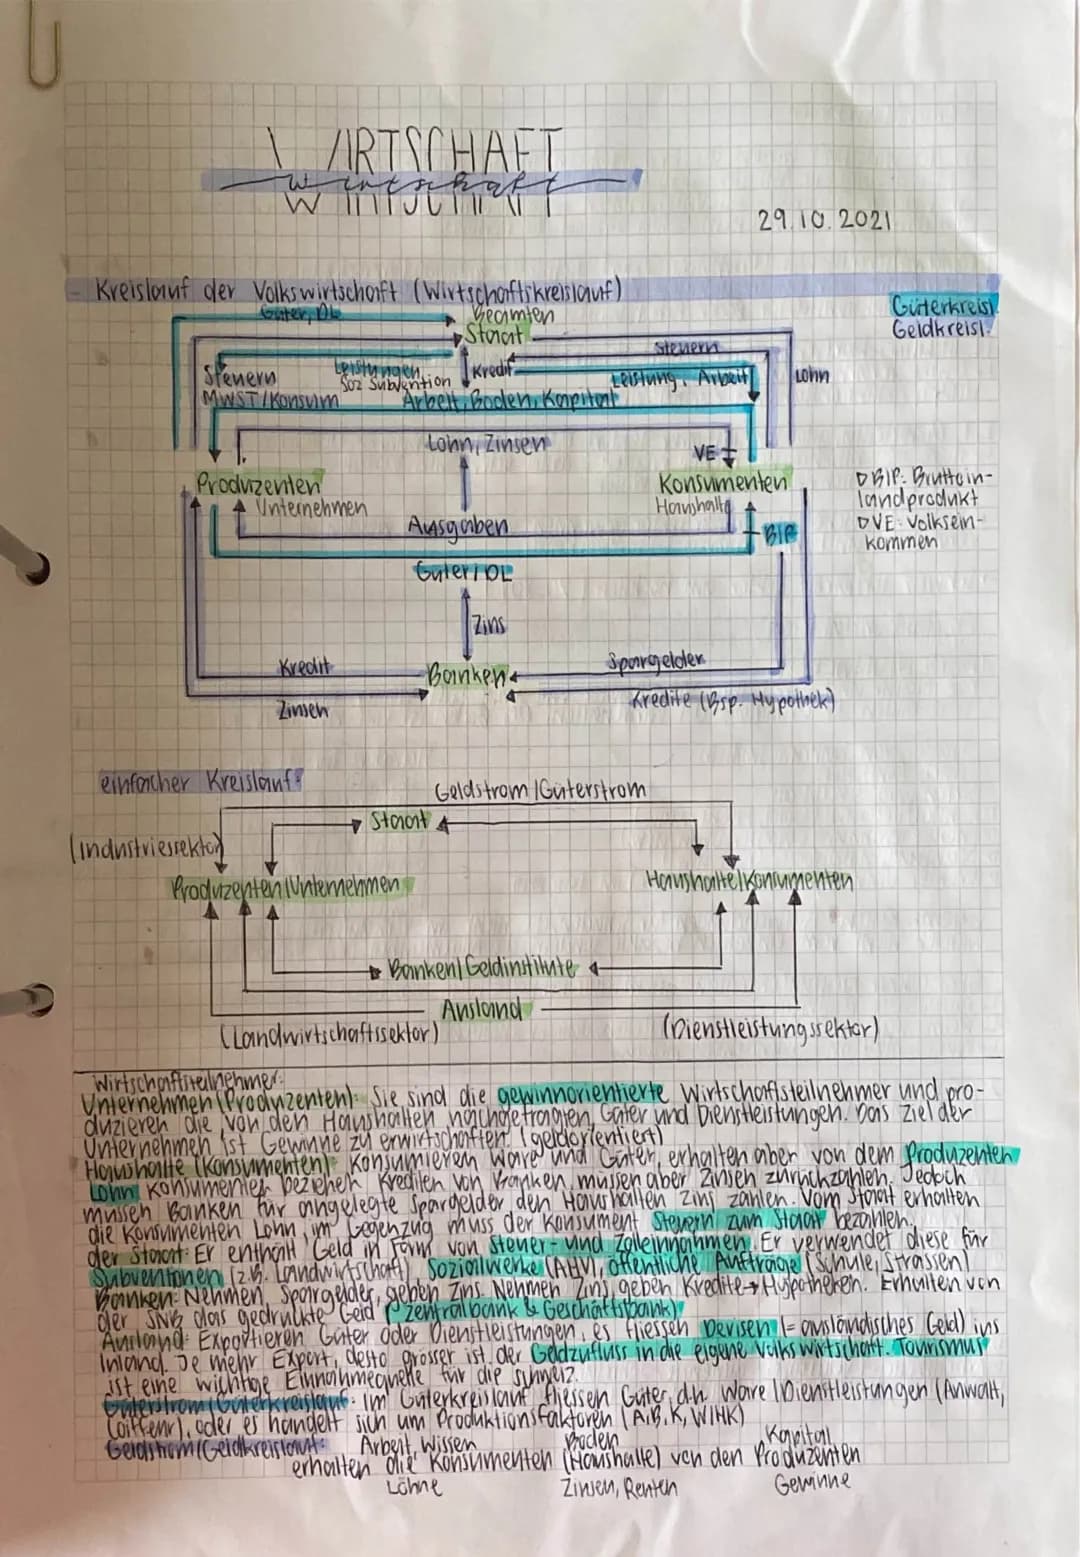 WIRTSCHAFT
wirtschaft
29.10.2021
- Kreislauf der Volkswirtschaft (Wirtschaftskreislauf)
Güterkreisl.
Geldkreisl.
Güter, DL
Beamten
Staat
Steuern
Leistungen
Soz Subvention
Kredit
Leistung, Arbeit
Lohn
Steuern
MWST/Konsum
Arbeit, Boden, Kapital
Lohn, Zinsen
VE
Produzenten
Unternehmen
Konsumenten
Haushalte
▷BIP: Bruttoin-
landprodukt
▷VE: Volksein-
kommen
Ausgaben
BIP
Güter/DL
Zins
Kredit
Banken
Spargelder
Zinsen
Kredite (Bsp. Hypothek)
einfacher Kreislauf:
Geldstrom/Güterstrom
Staat
(Industriesektor)
Produzenten/Unternehmen
Haushalte/Konsumenten
Banken/Geldinstitute
Ausland
(Landwirtschaftssektor)
(Dienstleistungssektor)
Wirtschaftsteilnehmer:
Unternehmen (Produzenten): Sie sind die gewinnorientierte Wirtschaftsteilnehmer und pro-
duzieren die von den Haushalten nachgefragten Güter und Dienstleistungen. Das Ziel der
Unternehmen ist Gewinne zu erwirtschaften. (geldorientiert)
Haushalte (Konsumenten): Konsumieren Ware und Güter, erhalten aber von dem Produzenten
Lohn. Konsumenten beziehen Krediten von Banken, müssen aber Zinsen zurückzahlen. Jedoch
müssen Banken für angelegte Spargelder den Haushalten Zins zahlen. Vom Staat erhalten
die Konsumenten Lohn, im Gegenzug muss der Konsument Steuern zum Staat bezahlen.
der Staat: Er enthält Geld in Form von Steuer- und Zolleinnahmen. Er verwendet diese für
Subventionen (z.B. Landwirtschaft), Sozialwerke (AHV), öffentliche Aufträge (Schule, Strassen)
Banken: Nehmen Spargelder, geben Zins. Nehmen Zins, geben Kredite→Hypotheken. Erhalten von
der SNB das gedruckte Geld (zentralbank & Geschäftsbank)
Ausland: Exportieren Güter oder Dienstleistungen, es fliessen Devisen (= ausländisches Geld) ins
Inland. Je mehr Export, desto grösser ist der Geldzufluss in die eigene Volkswirtschaft. Tourismus
ist eine wichtige Einnahmequelle für die Schweiz.
Güterstrom/Güterkreislauf: Im Güterkreislauf fliessen Güter, d.h. Ware/Dienstleistungen (Anwalt,
Coiffeur), oder es handelt sich um Produktionsfaktoren (A,B,K, W/HK)
Geldstrom/Geldkreislauf: Arbeit, Wissen Boden Kapital
erhalten die Konsumenten (Haushalte) von den Produzenten
Löhne Zinsen, Renten Gewinne